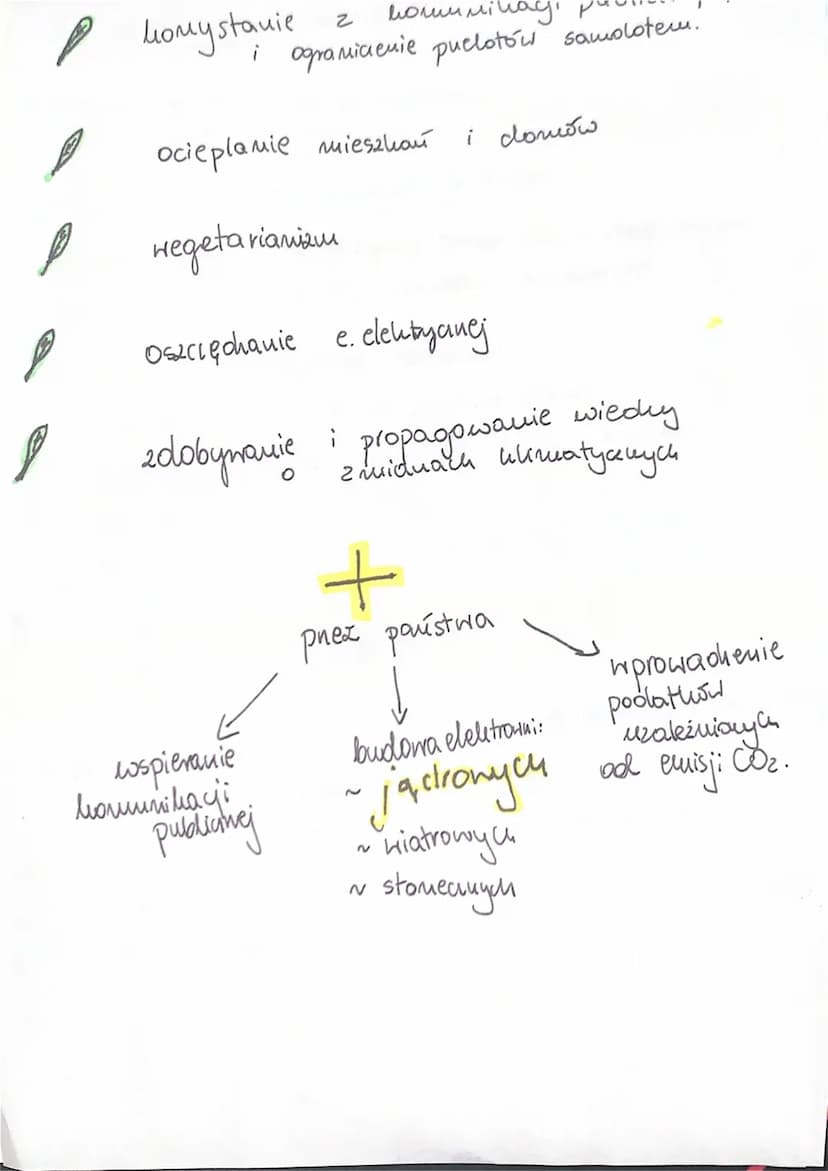 korzystanie z komunikacji
i ograniczenie puclotów samolotem.
ocieplanie mieszkań i domów
wegetarianizm
oszczędzanie e. elektrycznej
zdobywanie i propagowanie wiedzy
o zmianach klimatycznych
przez państwa
wspieranie
komunikacji
publicznej
budowa elektrowni:
~ jądrowych
~ wiatrowych
~ słonecznych
wprowadzenie
podatków
uzależnionych
od emisji CO₂.